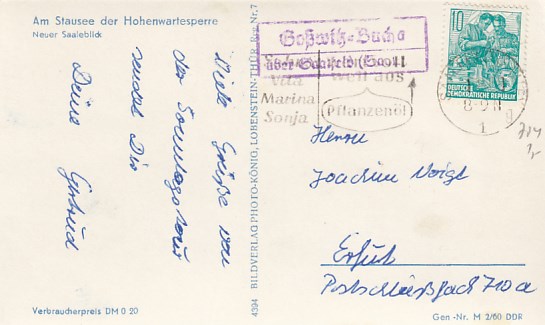 Am Stausee der Hohenwartesperre
Neuer Saaleblick
Viele Grüße von
der Sonntagstour
sendet Dir
Deine Gertrud
4394 BILDVERLAG PHOTO-KÖNIG, LOBENSTEIN-THÜR. Nr. 7
Goßwitz-Bucha
über Saalfeld (Saale)
Vita
Marina
Sonja
weil aus
Pflanzenöl
10
DEUTSCHE
DEMOKRATISCHE REPUBLIK
Herrn
Joachim Voigt
Erfurt
Postschließfach 710a
Verbraucherpreis DM 0 20
Gen.-Nr. M 2/60 DDR